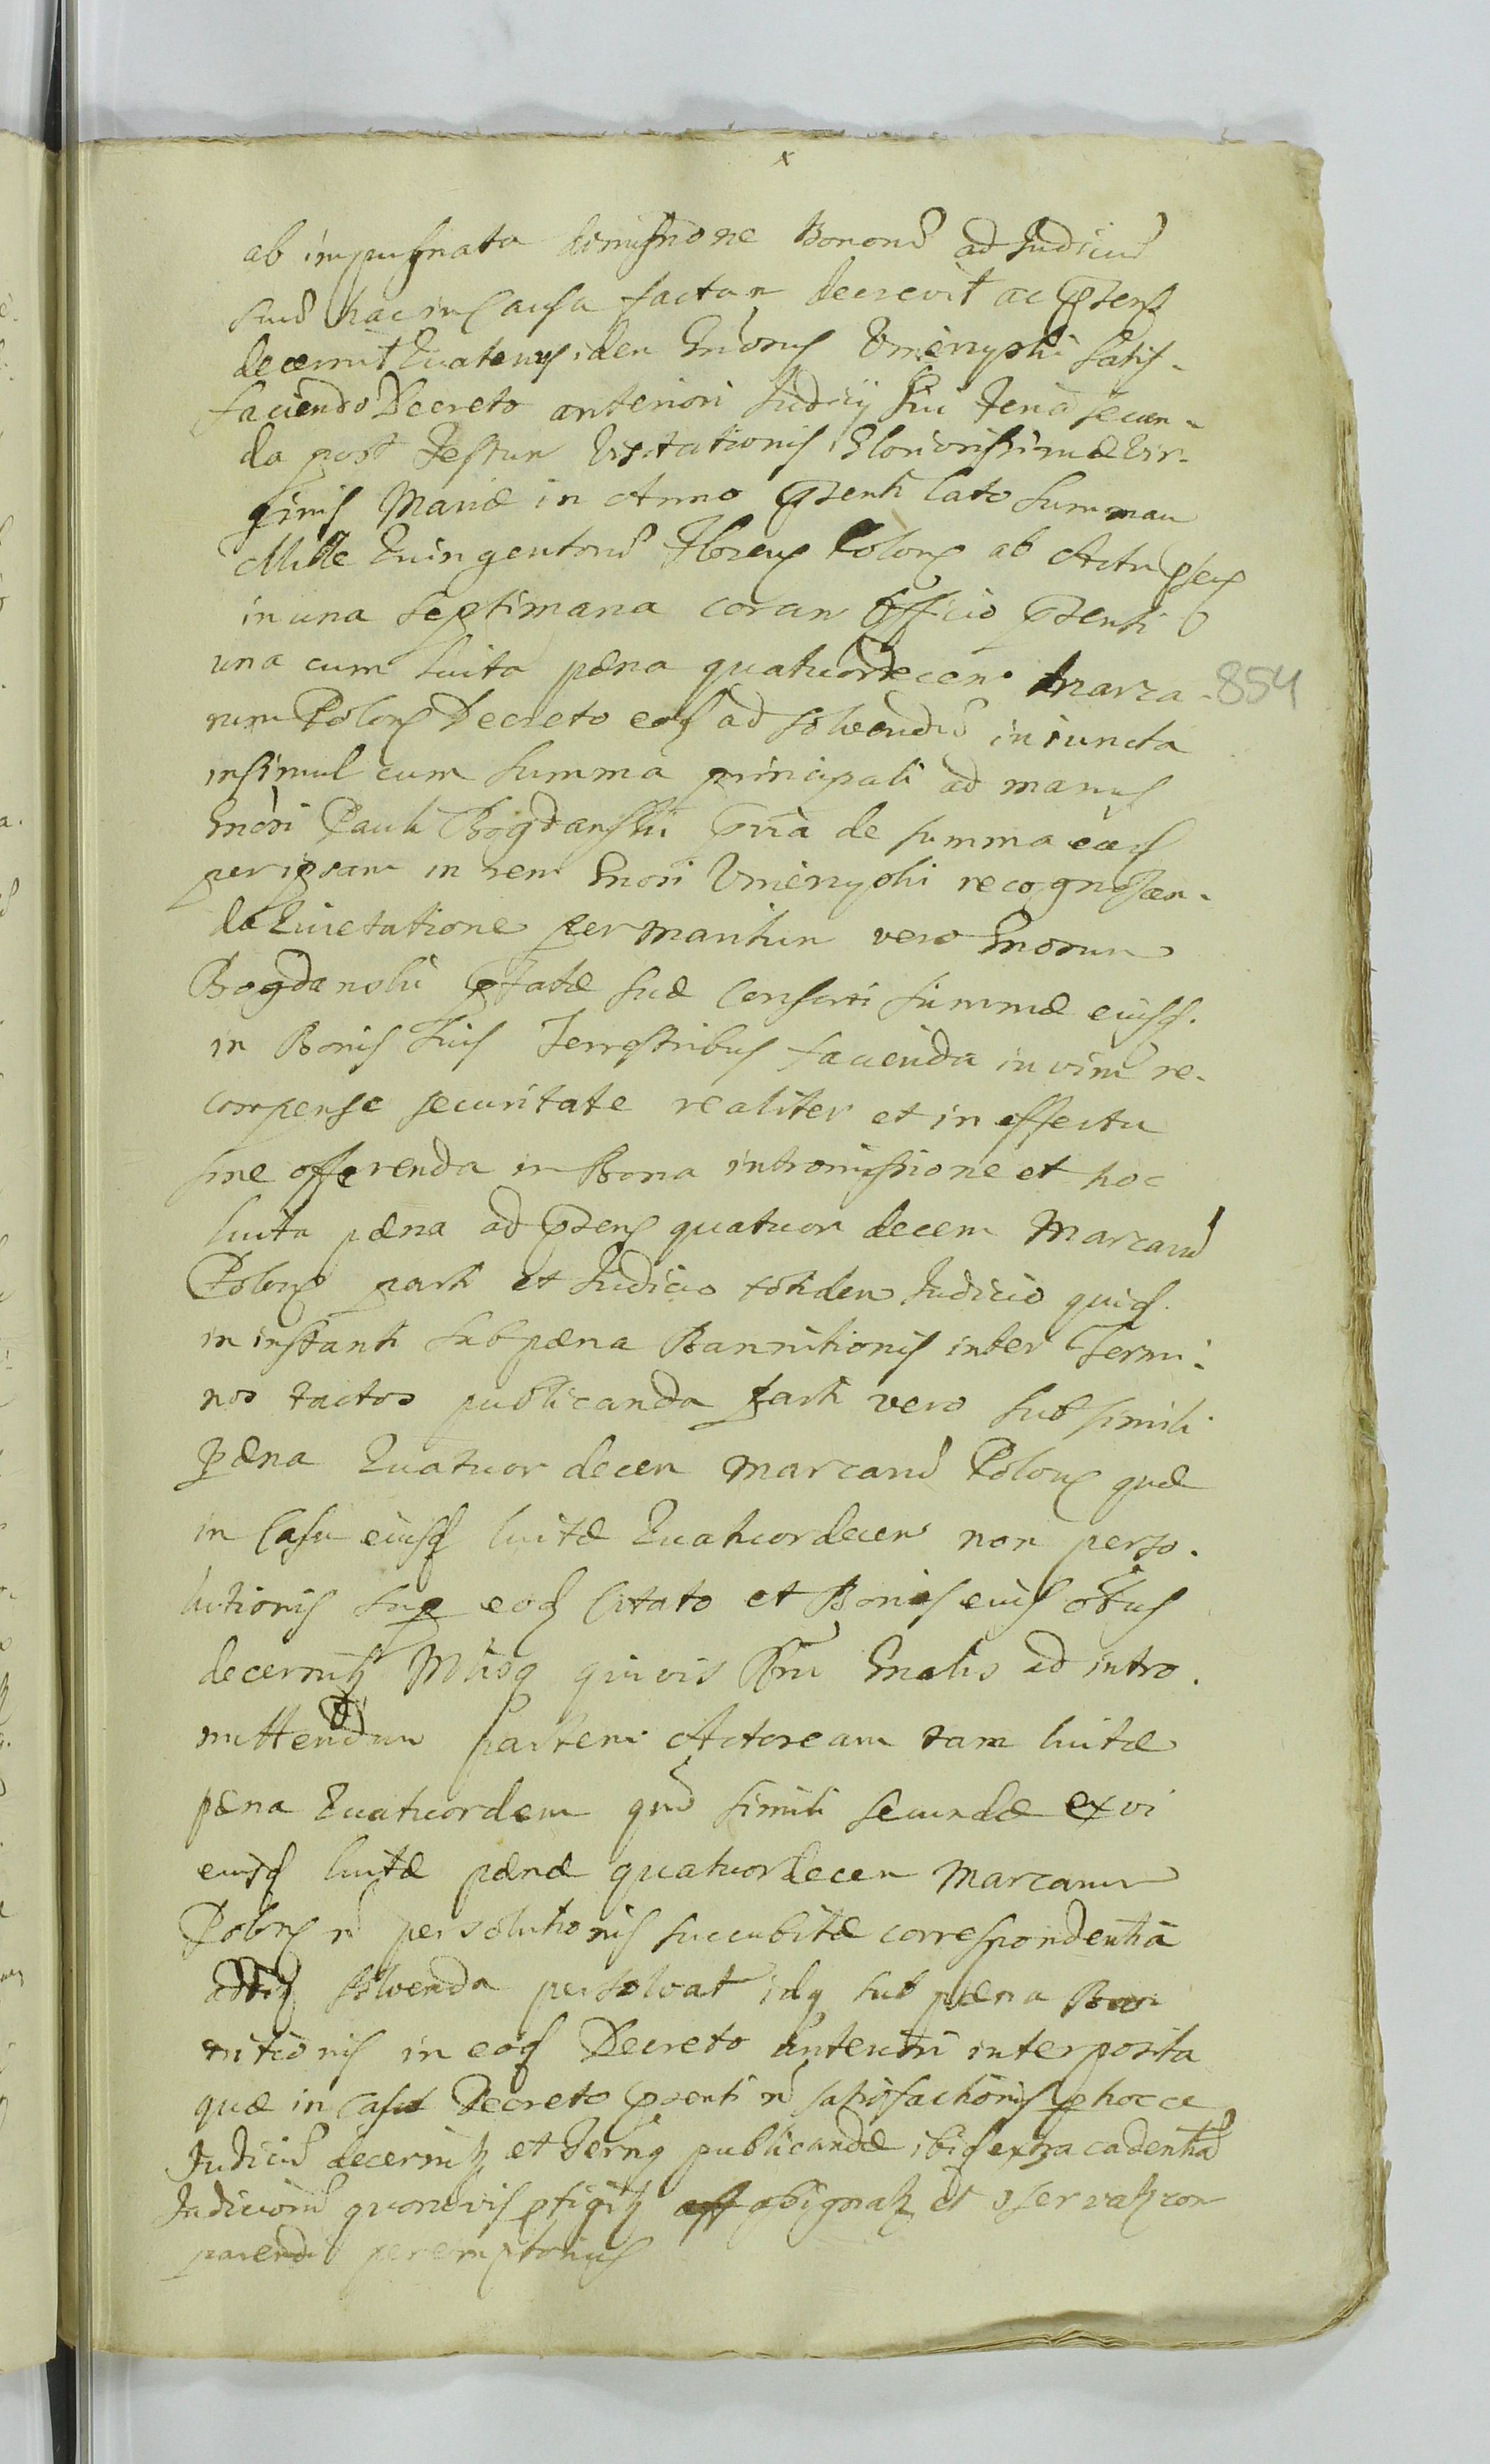 x
ab impugnata dimissione Bonorũ ad Judiciũ
suũ hac in Causa factam decrevit ac pñens
decernit Quatenus idem Gñosus Umienyski satis-
faciendo Decreto anteriori Judicij sui Feria Secun-
da post Festum Visitationis Gloriosissimæ Vir-
ginis Mariæ in Anno pñenti lato Summam
Mille Quingentorũ Floren Polon ab Actu pñen
in una septimana coram Officio pñenti
una cum luita pæna quatuordecem Marca- 854
rum Polon Decreto eod ad solvendũ iniuncta
insimul cum summa principali ad manus
Gñosi Pauli Bogdanski pria de summa ead
per ipsam in rem Gñosi Umienyski recognoscen-
da Quietatione per maritum vero Gnosum
Bogdanski pfatæ suæ Consorti summæ eiusq.
in Bonis suis Terrestribus facienda in vim re-
compense securitate realiter et in effectu
sine offerenda in Bona intromissione et hoc
luita pæna ad pñens quatuor decem Marcarũ
Polon parti et Judicio totidem Judicio quid.
in instanti sub pæna Bannitionis inter Termi-
nos tactos publicanda parti vero sub simili
pæna Quatuor decem Marcarũ Polon quæ
in Casu eiusd luitæ Quatuordecem non perso-
lutionis sup eod Citato et Bonis eius oĩbus
decernitz quivis ad intro-
mittendum partem Actoream tam luitæ
pæna Quatuordem qũ simili secundæ ex vi
eiusd luitæ pænæ quatuordecem Marcarum
Polon ñ persolutionis succubitæ correspondentia
solvenda persolvat idq sub pæna Ban
nitionis in eod Decreto anteriori interposita
quæ in casu Decreto pñenti ñ satisfactionis p hocce
Judiciũ decernitz et Termq publicandæ ibid extra cadentiã
Judiciorũ quorumvis pfigitz assignatz et oservatz com
parendi peremptorius